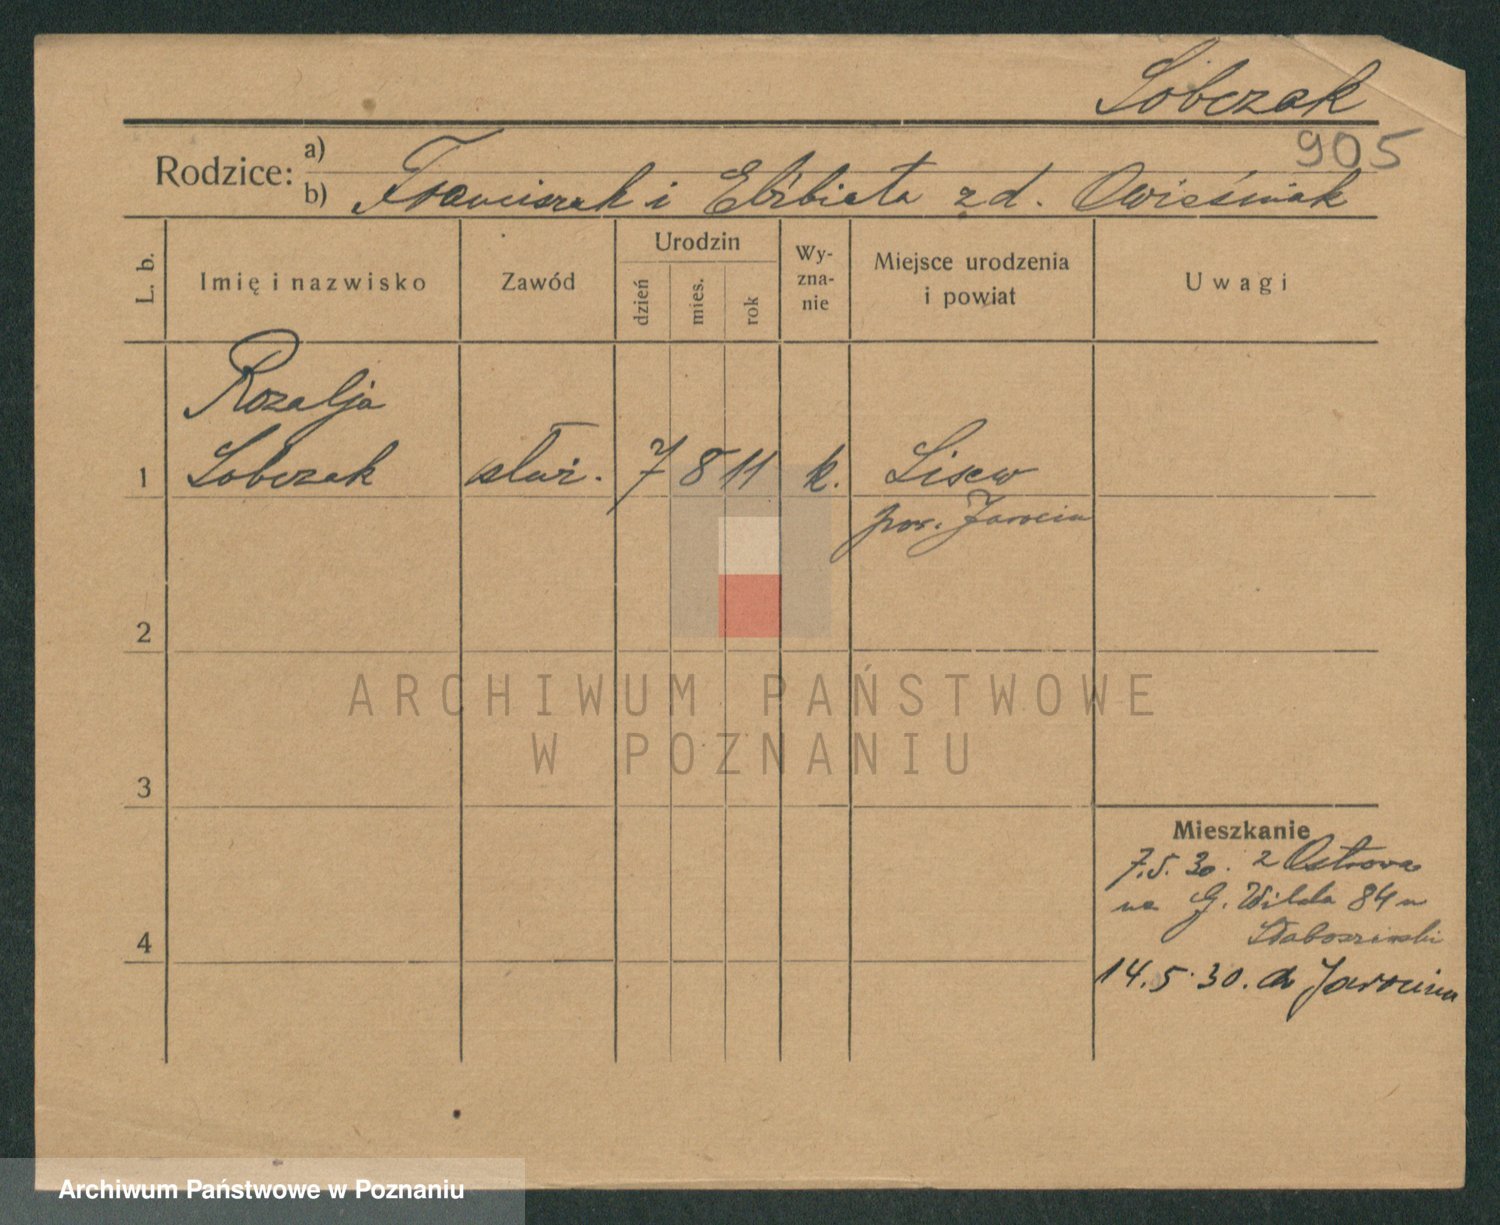 Sobczak
905
Rodzice: a)
b) Franciszek i Elżbieta z d. Owieśniak
L. b.
Imię i nazwisko
Zawód
Urodzin
dzień
mies.
rok
Wy-
zna-
nie
Miejsce urodzenia
i powiat
Uwagi
Rozalja
1 Sobczak służ. 7 8 11 k. Lisew
pow. Jarocin
2
ARCHIWUM PAŃSTWOWE
W POZNANIU
3
Mieszkanie
7.5.30. z Ostrowa
na G. Wilda 84 u
4
14.5.30. do Jarocina
Archiwum Państwowe w Poznaniu